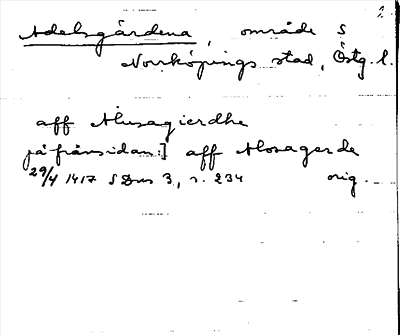 2.
Adelsgårdena, område S
Norrköpings stad, Östg. l.
aff Alusagierdhe
på frånsidan:] aff Alosagerde
29/4 1417 SDns 3, s. 234 orig.